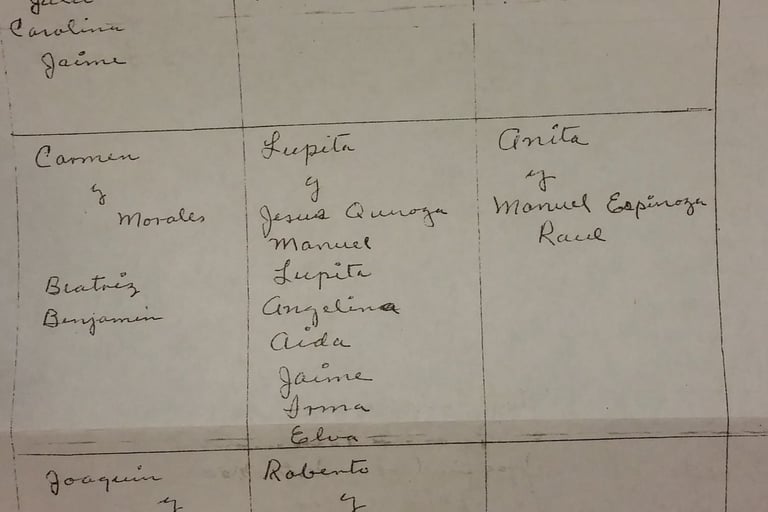 Carolina
Jaime
Carmen
y
Morales
Beatriz
Benjamin
Lupita
y
Jesus Quiroga
Manuel
Lupita
Angelina
Aida
Jaime
Irma
Elva
Anita
y
Manuel Espinoza
Raul
Joaquin
y
Roberto
y